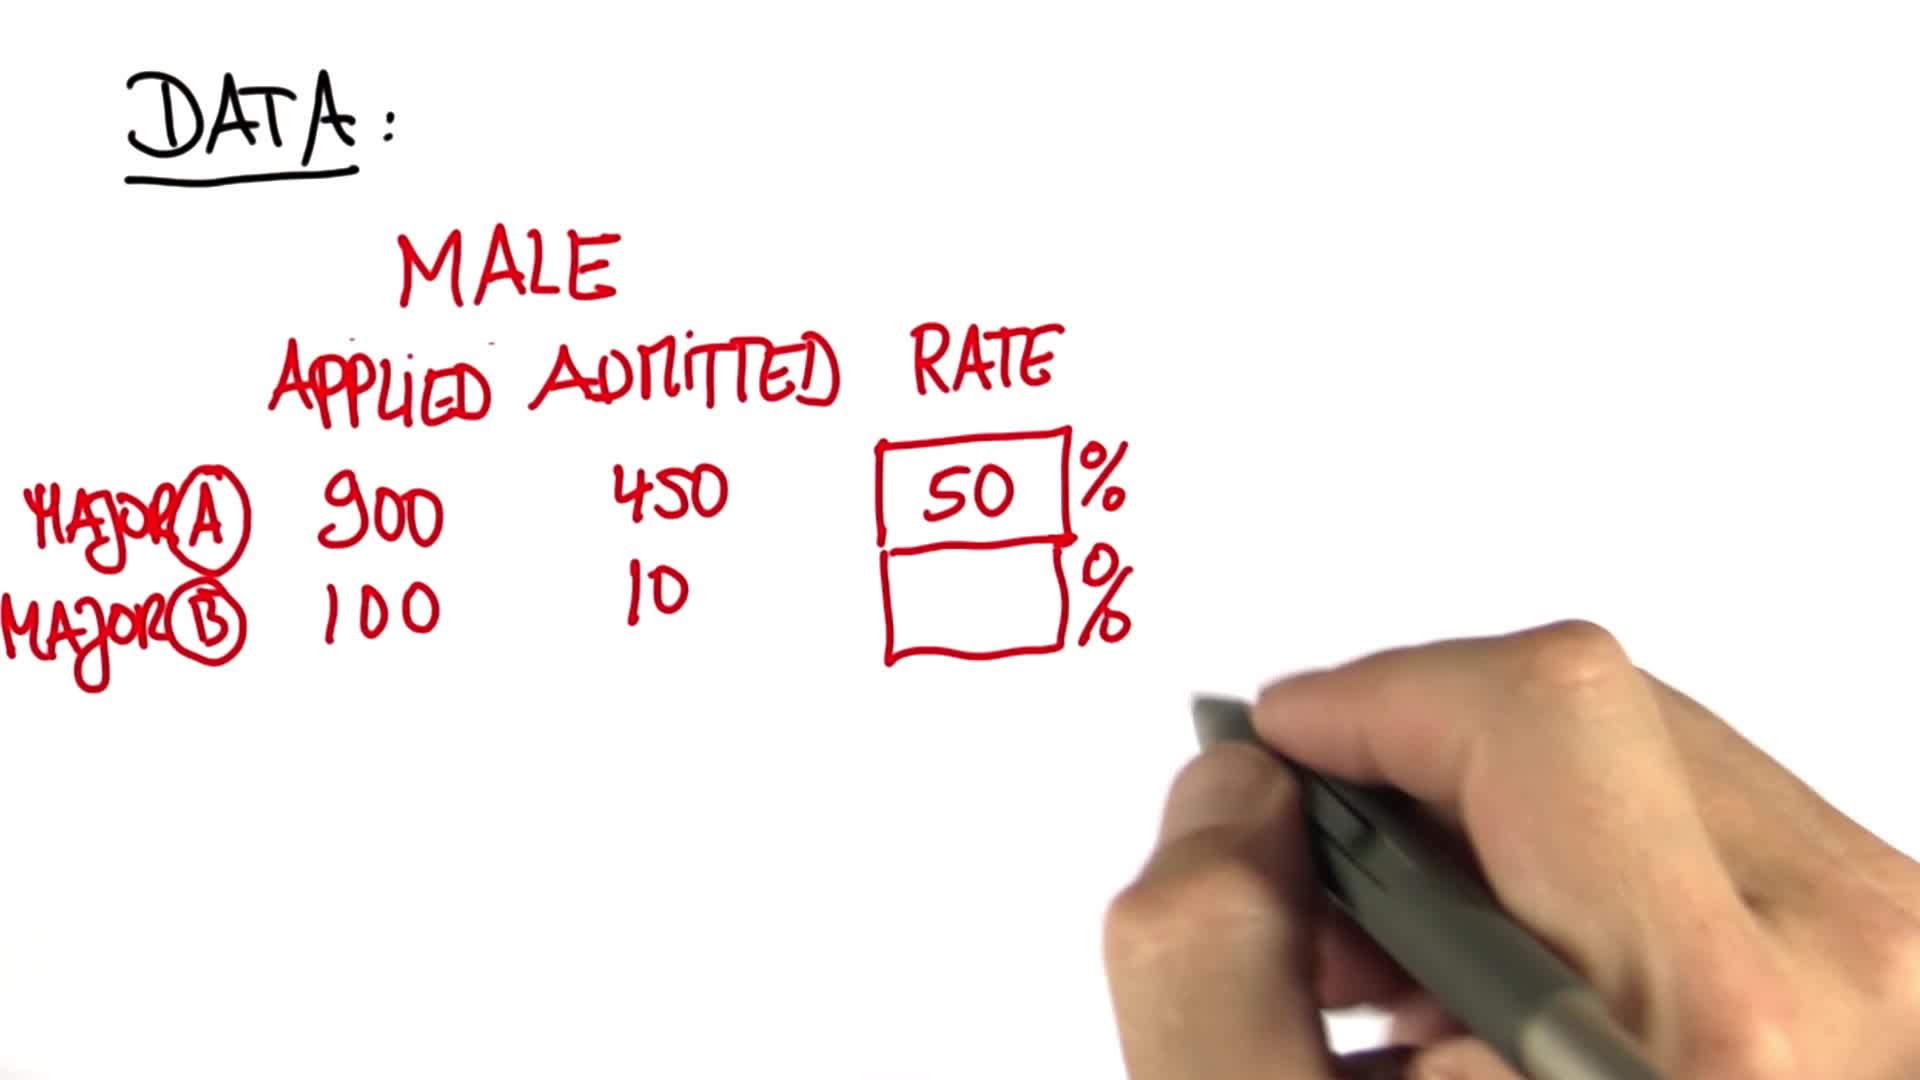 DATA:
MALE
APPLIED ADMITTED RATE
MAJOR A 900 450 50 %
MAJOR B 100 10 %